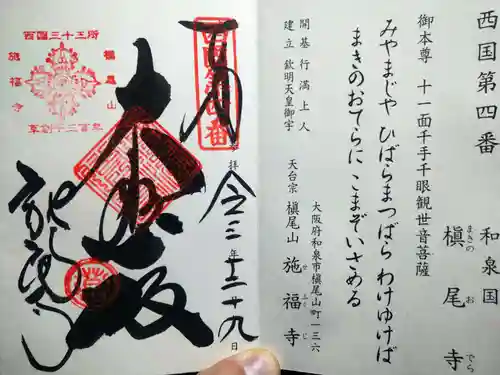 西国第四番
和泉国
槇尾寺
まきのおでら
御本尊 十一面千手千眼観世音菩薩
みやまじや ひばらまつばら わけゆけば
まきのおてらに こまぞいさめる
開基 行満上人
建立 欽明天皇御宇
大阪府和泉市槇尾山町一三六
天台宗 槇尾山 施福寺
せふくじ
拝
令三年十二十九日
大悲殿
西国三十三所
槇尾山
施福寺
草創千三百年